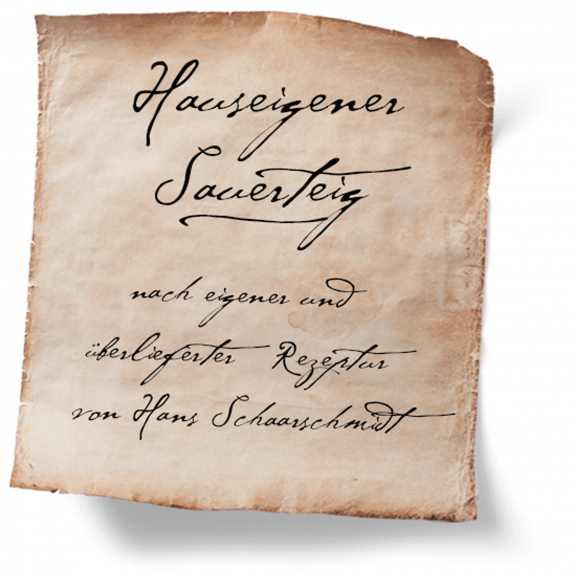 Hauseigener
Sauerteig
nach eigener und
überlieferter Rezeptur
von Hans Schaarschmidt